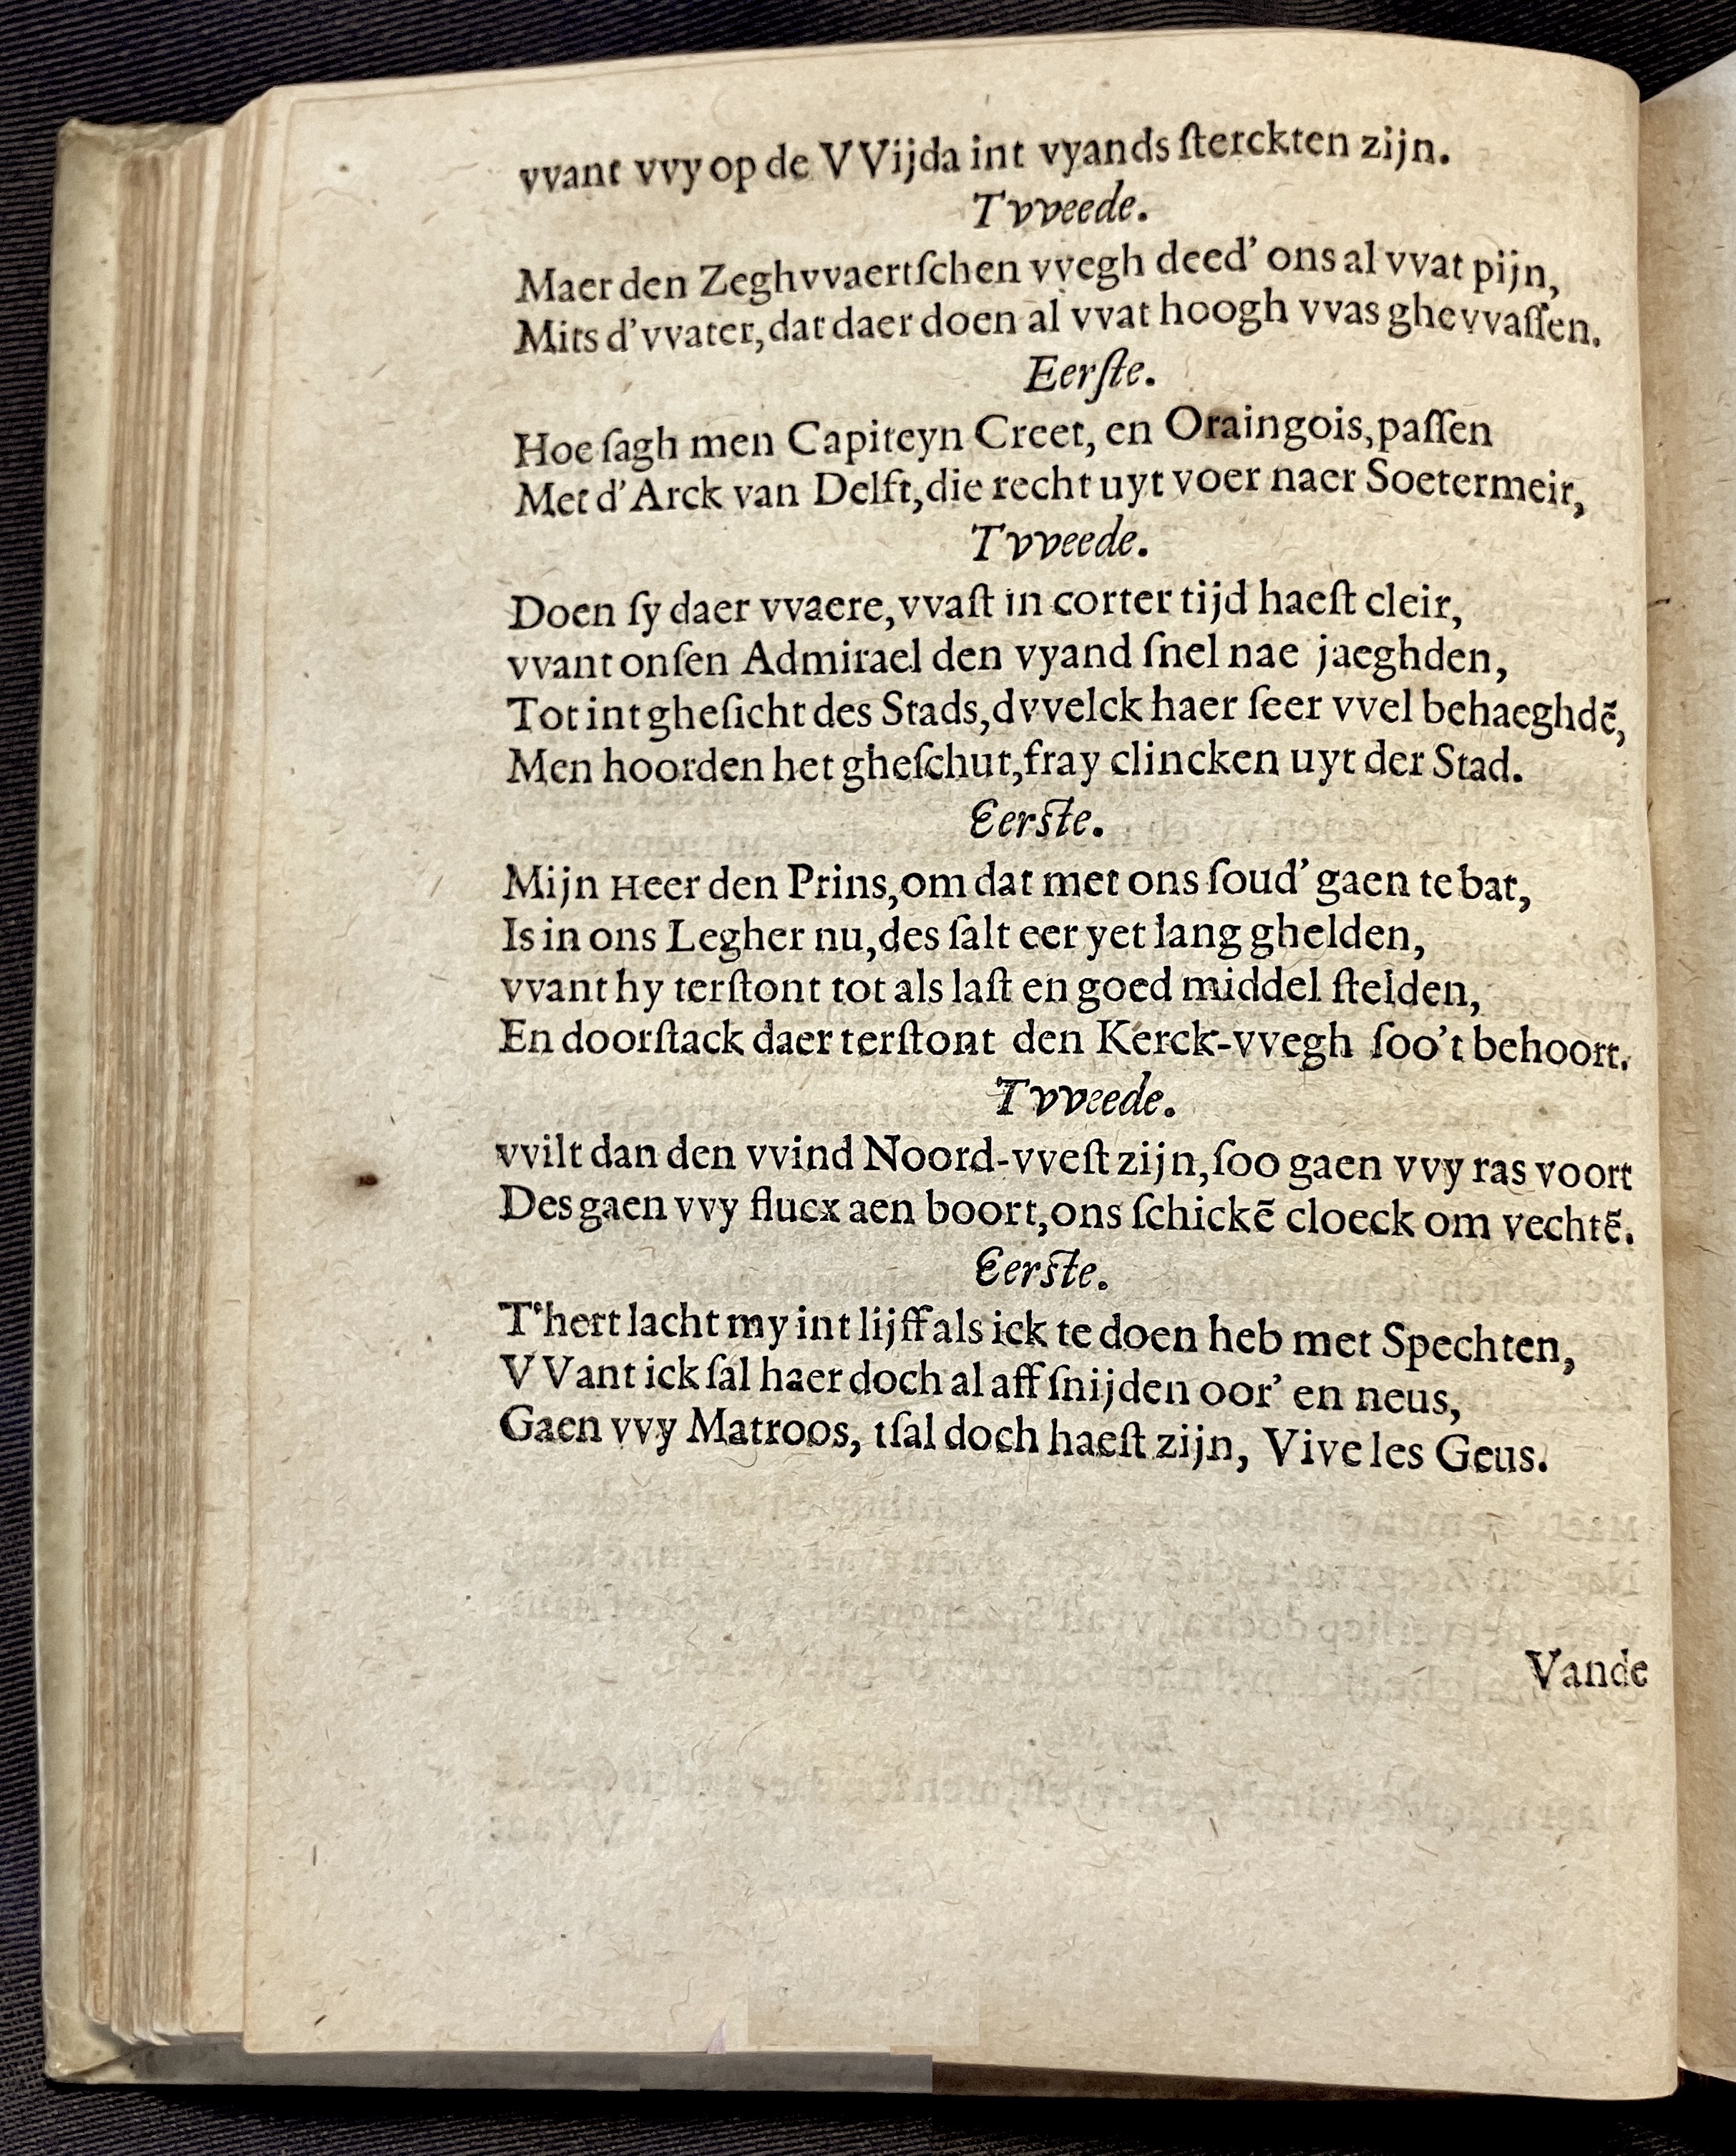 vvant vvy op de VVijda int vyands ſterckten zijn.
Tvveede.
Maer den Zeghvvaertſchen vvegh deed' ons al vvat pijn,
Mits d'vvater, dat daer doen al vvat hoogh vvas ghevvaſſen.
Eerſte.
Hoe ſagh men Capiteyn Creet, en Oraingois, paſſen
Met d'Arck van Delft, die recht uyt voer naer Soetermeir,
Tvveede.
Doen ſy daer vvaere, vvaſt in corter tijd haeſt cleir,
vvant onſen Admirael den vyand ſnel nae jaeghden,
Tot int gheſicht des Stads, dvvelck haer ſeer vvel behaeghdẽ,
Men hoorden het gheſchut, fray clincken uyt der Stad.
Eerſte.
Mijn Heer den Prins, om dat met ons ſoud' gaen te bat,
Is in ons Legher nu, des ſalt eer yet lang ghelden,
vvant hy terſtont tot als laſt en goed middel ſtelden,
En doorſtack daer terſtont den Kerck-vvegh ſoo't behoort.
Tvveede.
vvilt dan den vvind Noord-vveſt zijn, ſoo gaen vvy ras voort
Des gaen vvy flucx aen boort, ons ſchickẽ cloeck om vechtẽ.
Eerſte.
T'hert lacht my int lijff als ick te doen heb met Spechten,
VVant ick ſal haer doch al aff ſnijden oor' en neus,
Gaen vvy Matroos, tſal doch haeſt zijn, Vive les Geus.
Vande